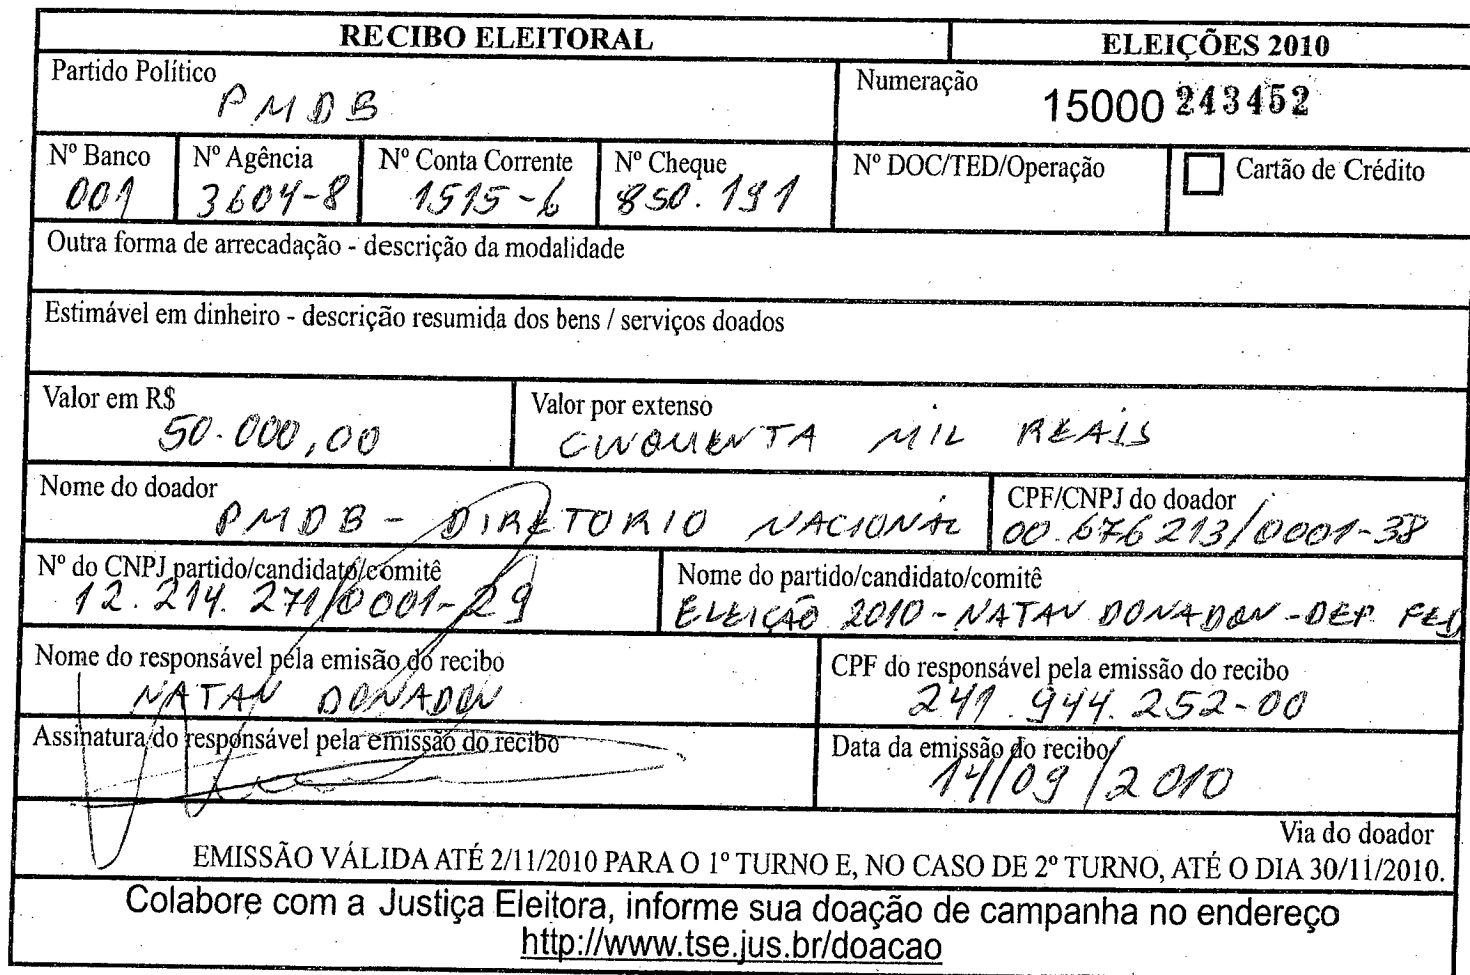 RECIBO ELEITORAL ELEIÇÕES 2010
Partido Político Numeração
PMDB 15000 243452
Nº Banco Nº Agência Nº Conta Corrente Nº Cheque Nº DOC/TED/Operação Cartão de Crédito
001 3604-8 1515-6 850.191
Outra forma de arrecadação - descrição da modalidade
Estimável em dinheiro - descrição resumida dos bens / serviços doados
Valor em R$ Valor por extenso
50.000,00 CINQUENTA MIL REAIS
Nome do doador CPF/CNPJ do doador
PMDB - DIRETORIO NACIONAL 00.676213/0001-38
Nº do CNPJ partido/candidato/comitê Nome do partido/candidato/comitê
12.214.271/0001-29 ELEIÇÃO 2010 - NATAN DONADON - DEP. FED
Nome do responsável pela emisão do recibo CPF do responsável pela emissão do recibo
NATAN DONADON 241.944.252-00
Assinatura do responsável pela emissão do recibo Data da emissão do recibo
14/09/2010
Via do doador
EMISSÃO VÁLIDA ATÉ 2/11/2010 PARA O 1º TURNO E, NO CASO DE 2º TURNO, ATÉ O DIA 30/11/2010.
Colabore com a Justiça Eleitora, informe sua doação de campanha no endereço
http://www.tse.jus.br/doacao